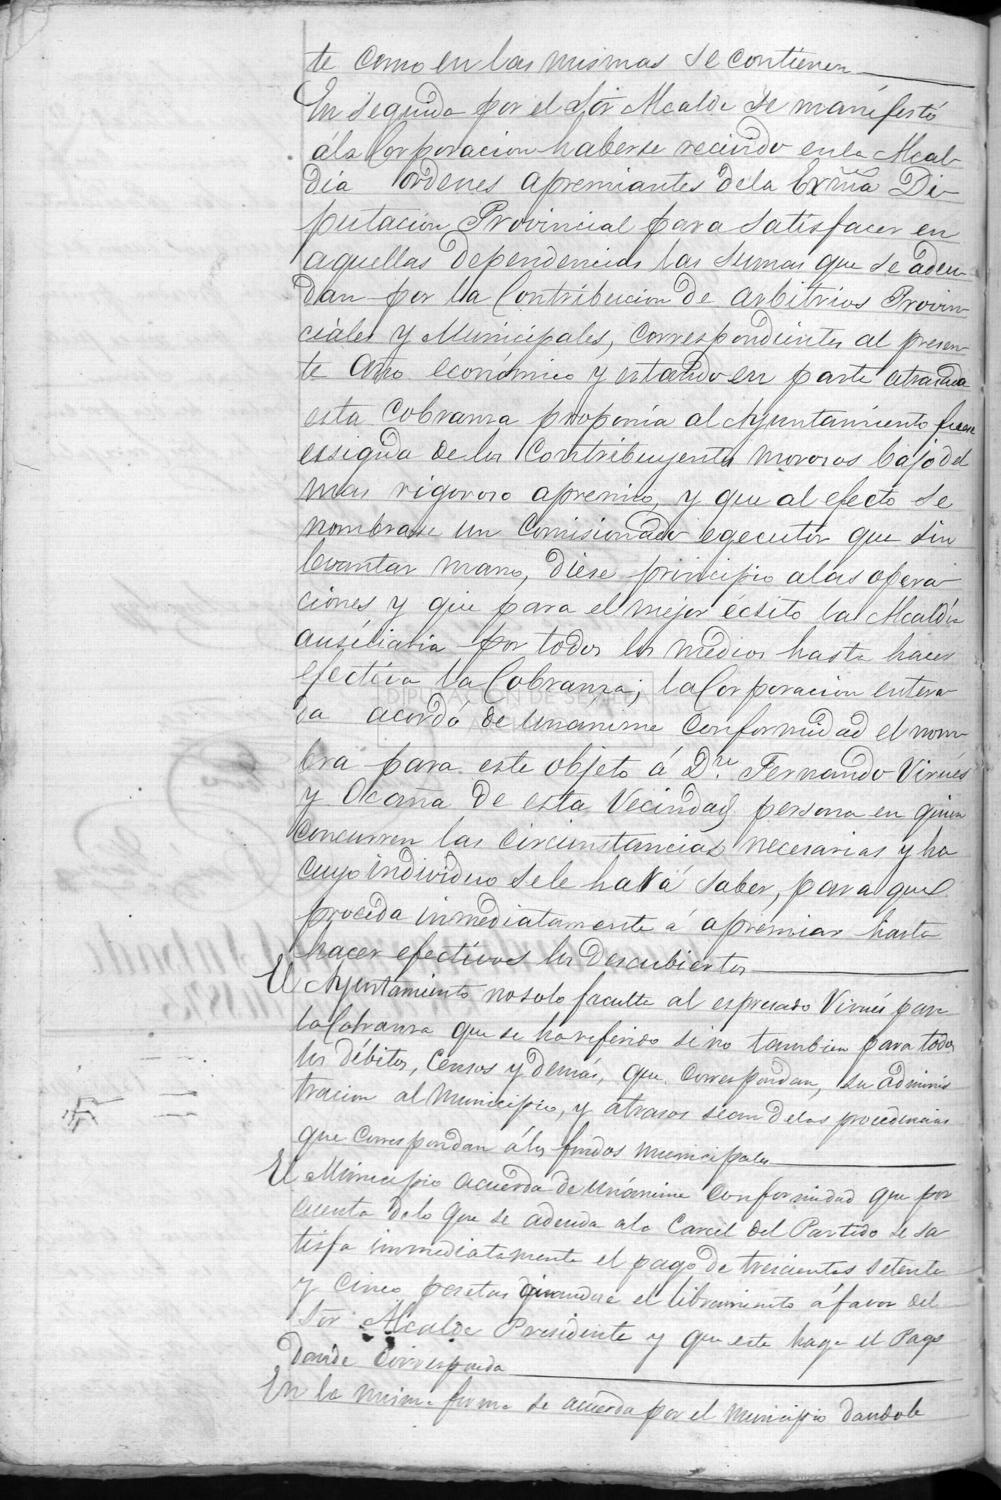 te como en las mismas se contienen
En seguida por el Sór Alcalde se manifestó
á la Corporacion haberse recivido en la Alcal-
día ordenes apremiantes de la Exmã Di-
putacion Provincial para satisfacer en
aquellas dependencias las sumas que se adeu-
dan por la Contribucion de arbitrios Provin-
ciales y Municipales, correspondientes al presen-
te año económico y estando en parte atrasada
esta cobranza proponia al Ayuntamiento fuese
essigida de los Contribuyentes morosos bajo del
mas rigoroso apremio, y que al efecto se
nombrase un Comisionado egecutor que sin
levantar mano, diese principio alas opera-
ciones y que para el mejor écsito la Alcaldia
ausiliaria por todos los medios hasta hacer
efectiva la Cobranza; la Corporacion entera-
da acordó de unanime conformidad el nom-
bra para este objeto á Dn. Fernando Virues
y Ocaña de esta Vecindad persona en quien
concurren las circunstancias necesarias y ha
cuyo individuo se le hará saber, para que
proceda inmediatamente á apremiar hasta
hacer efectivos los Descubiertos
El Ayuntamiento no solo faculta al espresado Virues para
la Cobranza que se ha referido si no tambien para todos
los débitos, Censos y demás, que correspondan, su adminis
tracion al Municipio, y atrasos sean de las procedencias
que correspondan á los fondos municipales
El Municipio acuerda de unánime conformidad que por
cuenta de lo que se adeuda ala Carcel del Partido se sa
tisfa immediatamente el pago de trescientas setenta
y cinco pesetas girandose el libramiento á favor del
Sór Alcalde Presidente y que este haga el Pago
donde corresponda
En la misma forma se acuerda por el Municipio dandole
DIPUTACIÓN DE SEVILLA